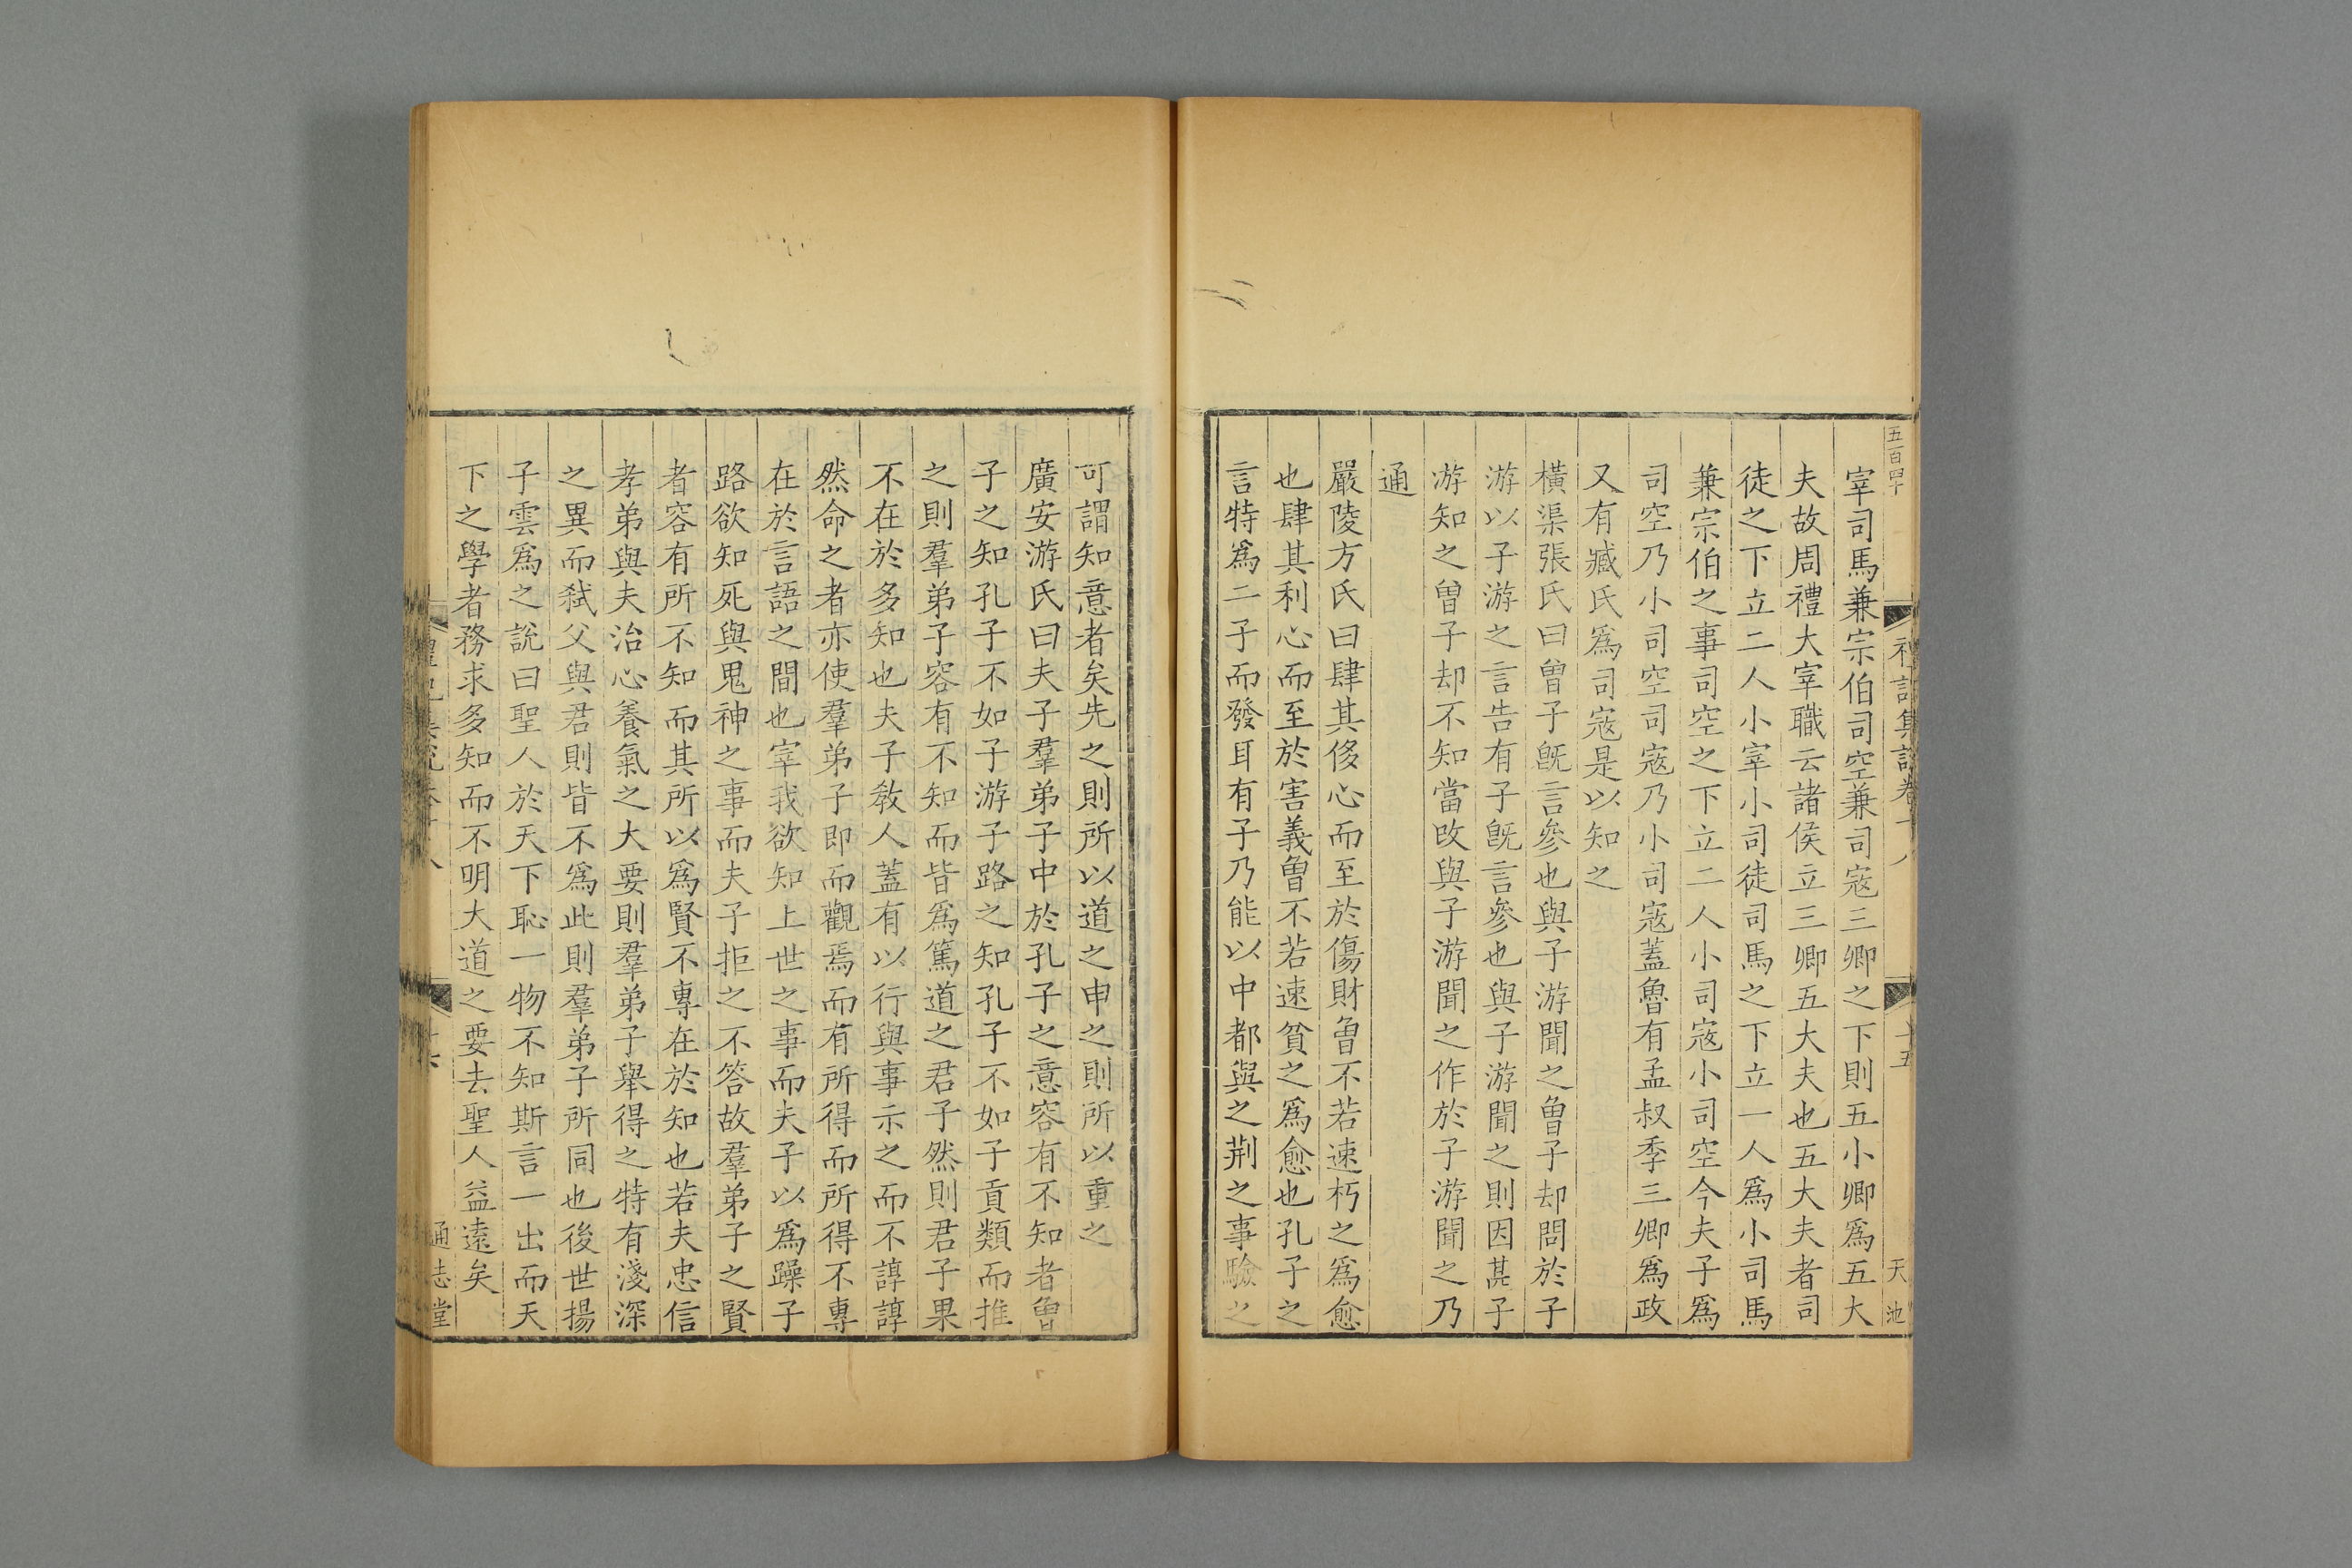 五百四十
禮記集說卷十八
十五
天池
宰司馬兼宗伯司空兼司寇三卿之下則五小卿爲五大
夫故周禮大宰職云諸侯立三卿五大夫也五大夫者司
徒之下立二人小宰小司徒司馬之下立一人爲小司馬
兼宗伯之事司空之下立二人小司寇小司空今夫子爲
司空乃小司空司寇乃小司寇蓋魯有孟叔季三卿爲政
又有臧氏爲司寇是以知之
橫渠張氏曰曾子旣言參也與子游聞之曾子却問於子
游以子游之言告有子旣言參也與子游聞之則因其子
游知之曾子却不知當改與子游聞之作於子游聞之乃
通
嚴陵方氏曰肆其侈心而至於傷財曾不若速朽之爲愈
也肆其利心而至於害義曾不若速貧之爲愈也孔子之
言特爲二子而發耳有子乃能以中都與之荆之事驗之
可謂知意者矣先之則所以道之申之則所以重之
廣安游氏曰夫子羣弟子中於孔子之意容有不知者曾
子之知孔子不如子游子路之知孔子不如子貢類而推
之則羣弟子容有不知而皆爲篤道之君子然則君子果
不在於多知也夫子敎人蓋有以行與事示之而不諄諄
然命之者亦使羣弟子即而觀焉而有所得而所得不專
在於言語之間也宰我欲知上世之事而夫子以爲躁子
路欲知死與鬼神之事而夫子拒之不答故羣弟子之賢
者容有所不知而其所以爲賢不專在於知也若夫忠信
孝弟與夫治心養氣之大要則羣弟子舉得之特有淺深
之異而弑父與君則皆不爲此則羣弟子所同也後世揚
子雲爲之說曰聖人於天下恥一物不知斯言一出而天
下之學者務求多知而不明大道之要去聖人益遠矣
禮記集說卷十八
十六
通志堂